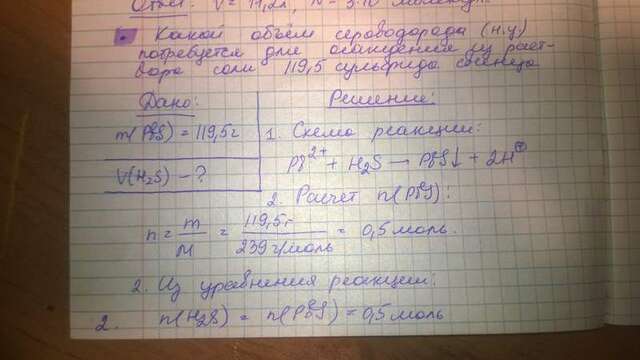 Ответ: V = 11,2л, N = 3·10 молекул
Какой объём сероводорода (н.у)
потребуется для осаждения из раст-
вора соли 119,5 сульфида свинца
Дано: Решение:
m(PbS) = 119,5г 1. Схема реакции:
V(H₂S) - ? Pb²⁺ + H₂S → PbS↓ + 2H⁺
2. Расчет n(PbS):
n = m/M = 119,5г/239 г/моль = 0,5 моль.
2. Из уравнения реакции:
2. n(H₂S) = n(PbS) = 0,5 моль